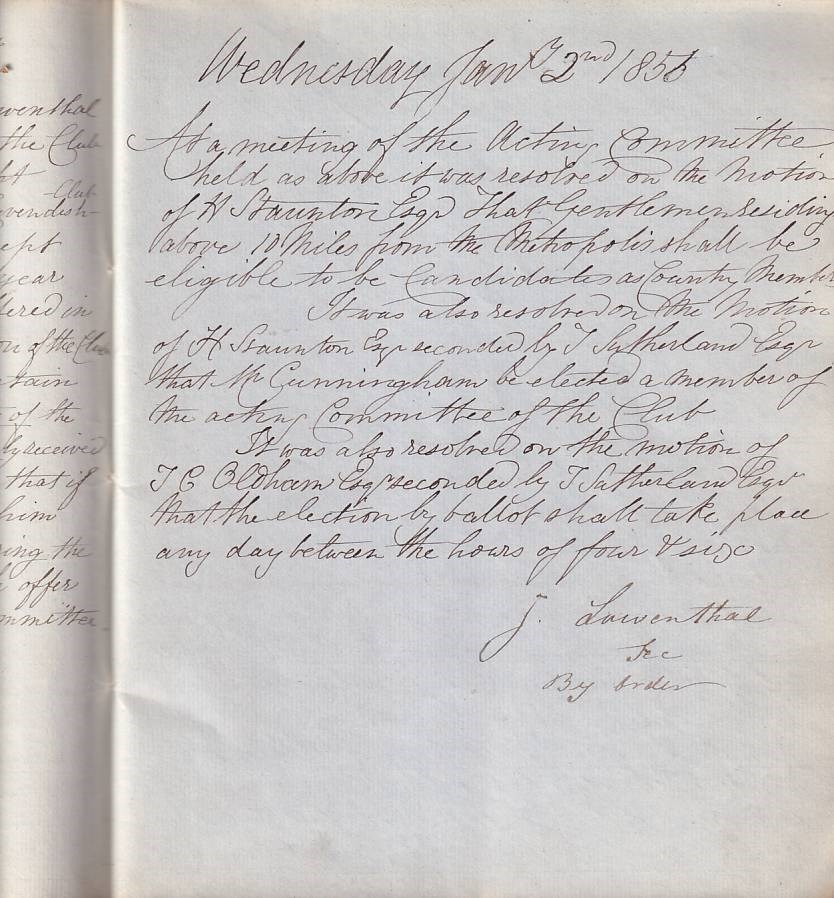 wenthal
the Club
Club
vendish
ept
year
ered in
n of the Club
tain
of the
ly received
that if
him
ing the
offer
mmittee
Wednesday Jany 2nd 1856
At a meeting of the Acting Committee
held as above it was resolved on the Motion
of H Staunton Esqr That Gentlemen residing
above 10 Miles from the Metropolis shall be
eligible to be Candidates as Country Member
It was also resolved on the Motion
of H Staunton Esqr seconded by T Sutherland Esqr
that Mr Cunningham be elected a member of
the acting Committee of the Club
It was also resolved on the motion of
T C Oldham Esqr seconded by T Sutherland Esqr
that the election by ballot shall take place
any day between the hours of four & six
J. Lowenthal
Sec
By order